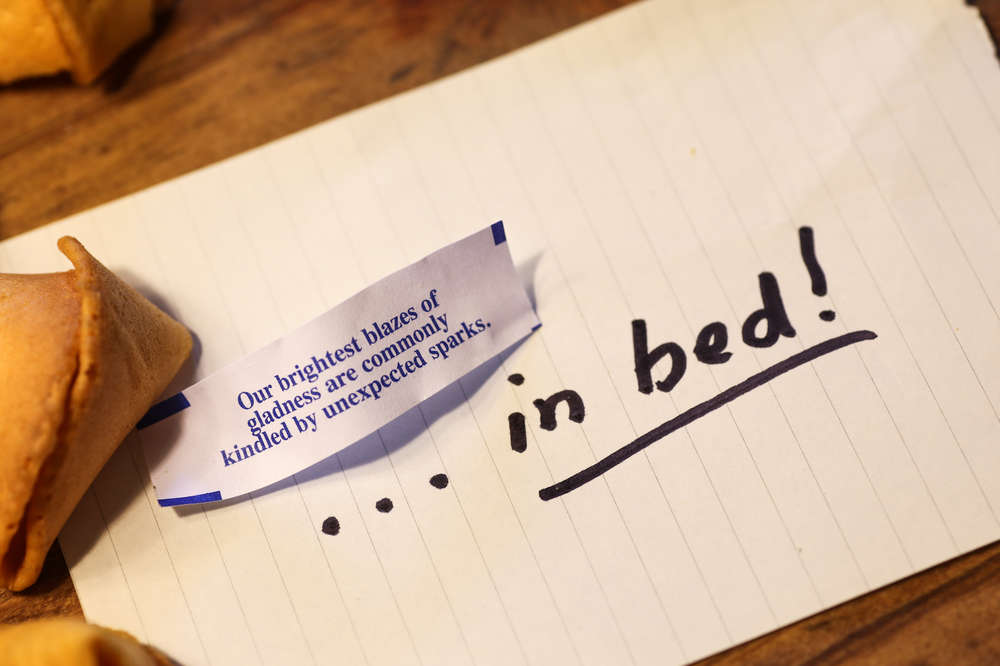 Our brightest blazes of
gladness are commonly
kindled by unexpected sparks.
... in bed!